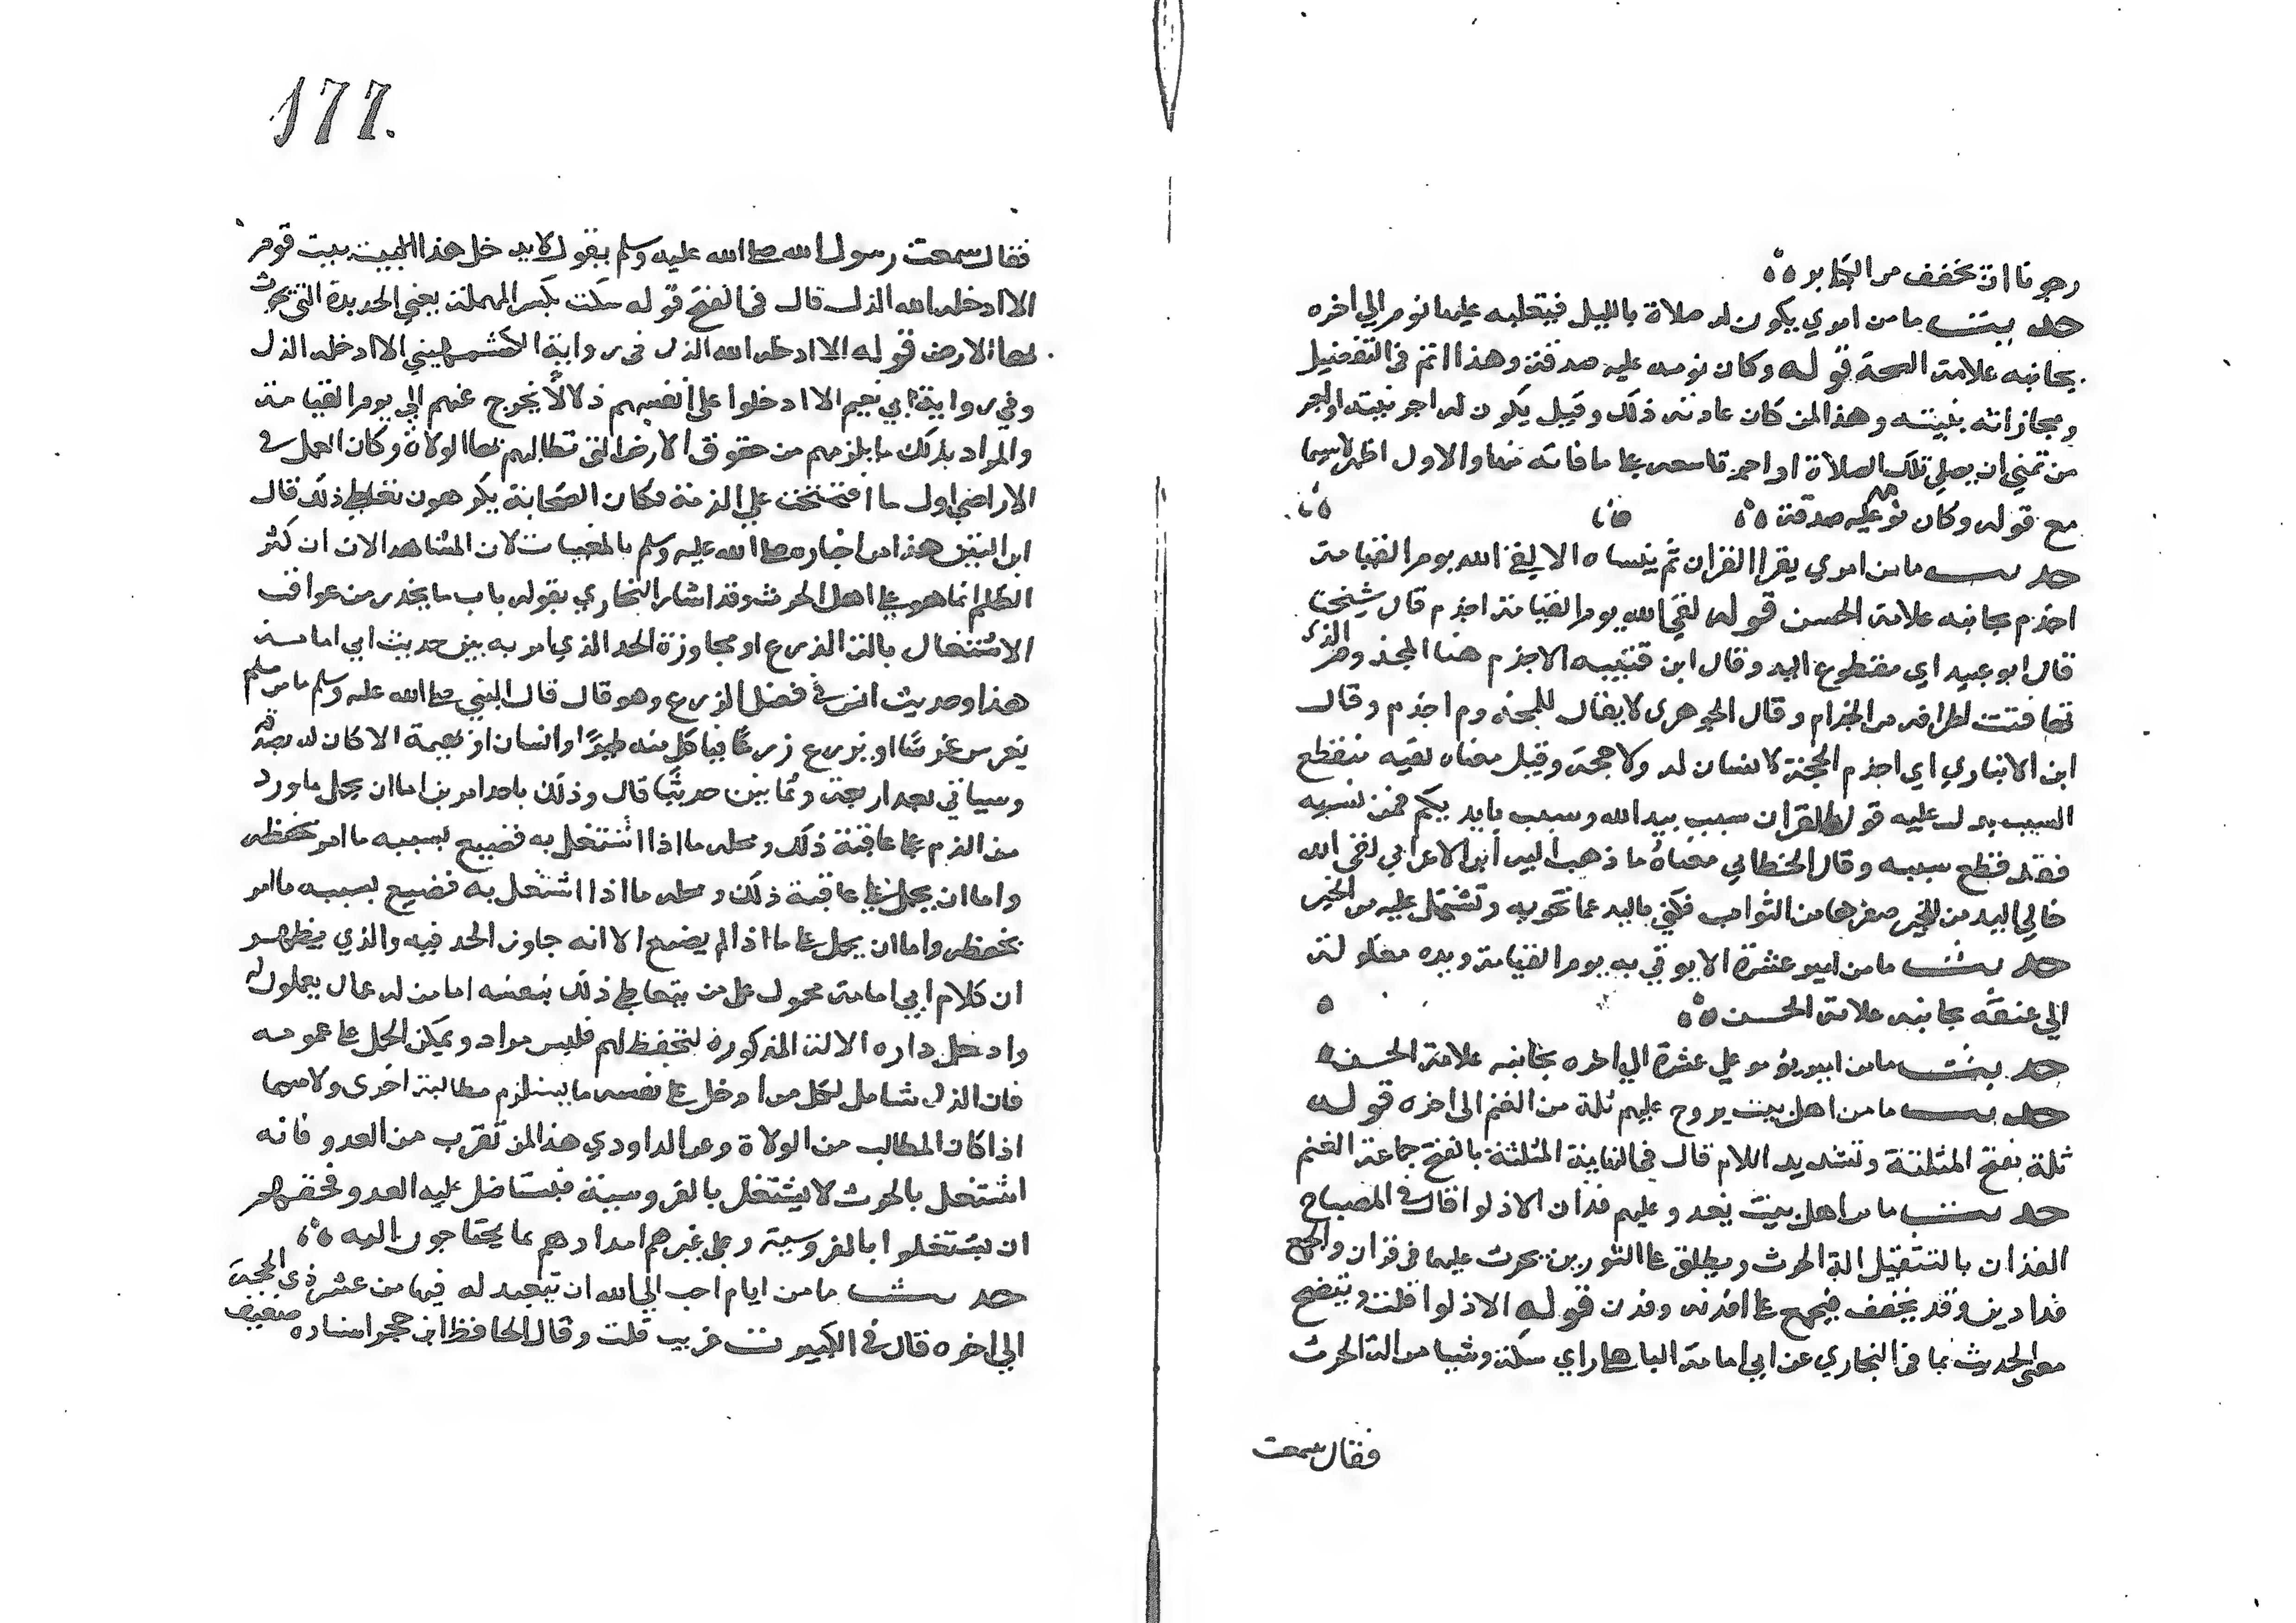 رجونا ان تخفف من الكبائر ٥٥
حديث ما من امرئ يكون له صلاة بالليل فيغلبه عليها نوم الي اخره
بجانبه علامة الصحة قوله وكان نومه عليه صدقة وهذا اتم في التفضيل
ومجازاته بنيته وهذا لمن كان عادته ذلك وقيل يكون له اجر نيته او اجر
من تمني ان يصلي تلك الصلاة او اجر تاسفه على ما فاته منها والاول اظهر لاسيما
مع قوله وكان نومه عليه صدقة ٥٥
حديث ما من امرئ يقرا القران ثم ينساه الا لقي الله يوم القيامة
اجذم بجانبه علامة الحسن قوله لقي الله يوم القيامة اجذم قال شيخنا
قال ابو عبيد اي مقطوع اليد وقال ابن قتيبة الاجذم هنا المجذوم الذي
تهافتت اطرافه من الجذام وقال الجوهري لا يقال للمجذوم اجذم وقال
ابن الانباري اي اجذم الحجة لا لسان له ولا حجة وقيل معناه لقيه منقطع
السبب يدل عليه قوله القران سبب بيد الله وسبب بايديكم فمن نسيه
فقد قطع سببه وقال الخطابي معناه ما ذهب اليه ابن الاعرابي لقي الله
خالي اليد من الخير صفرها من الثواب فكني باليد عما تحويه وتشتمل عليه من الخير
حديث ما من امير عشرة الا يوتي به يوم القيامة ويده مغلولة
الي عنقه بجانبه علامة الحسن ٥٥
حديث ما من امير يؤمر علي عشرة الي اخره بجانبه علامة الحسن
حديث ما من اهل بيت يروح عليهم ثلة من الغنم الى اخره قوله
ثلة بفتح المثلثة وتشديد اللام قال في النهاية الثلة بالفتح جماعة الغنم
حديث ما من اهل بيت يغدو عليهم فدان الا ذلوا قال في المصباح
الفدان بالتثقيل الة الحرث ويطلق على الثورين يحرث عليهما في قران والجمع
فدادين وقد يخفف فيجمع على افدنه وفدن قوله الا ذلوا قلت ويتضح
معنى الحديث بما في البخاري عن ابي امامة الباهلي راي سكة وشيا من الة الحرث
فقال سمعت
177.
فقال سمعت رسول الله صلى الله عليه وسلم يقول لا يدخل هذا البيت بيت قوم
الا ادخله الله الذل قال في الفتح قوله سكة بكسر المهملة يعني الحديدة التي تحرث
بها الارض قوله الا ادخله الله الذل في رواية الكشميهيني الا ادخله الذل
وفي رواية ابي نعيم الا ادخلوا على انفسهم ذلا لا يخرج عنهم الي يوم القيامة
والمراد بذلك ما يلزمهم من حقوق الارض التي تطالبهم بها الولاة وكان العمل في
الاراضي اول ما افتتحت علي الذمة فكان الصحابة يكرهون تعاطي ذلك قال
ابن التين هذا من اخباره صلى الله عليه وسلم بالمغيبات لان المشاهد الان ان اكثر
الظلم انما هو على اهل الحرث وقد اشار البخاري بقوله باب ما يحذر من عواقب
الاشتغال بالة الزرع او مجاوزة الحد الذي امر به بين حديث ابي امامة
هذا وحديث انس في فضل الزرع وهو قال قال النبي صلى الله عليه وسلم ما من مسلم
يغرس غرسًا او يزرع زرعًا فياكل منه طيرًا او انسان او بهيمة الا كان له به صدقة
وسياتي بعد اربعة وثمانين حديثًا قال وذلك باحد امرين اما ان يحمل ما ورد
من الذم على عاقبة ذلك ومحله ما اذا اشتغل به فضيع بسببه ما امر بحفظه
واما ان يحمل على عاقبة ذلك ومحله ما اذا اشتغل به فضيع بسببه ما امر
بحفظه واما ان يحمل على ما اذا لم يضيع الا انه جاوز الحد فيه والذي يظهر
ان كلام ابي امامة محمول على من يتعاطي ذلك بنفسه اما من له عمال يعملون له
وادخل داره الالة المذكورة لتحفظ لهم فليس مراد ويمكن الحمل على عمومه
فان الذل شامل لكل من ادخل على نفسه ما يستلزم مطالبة اخرى ولاسيما
اذا كان المطالب من الولاة وعن الداودي هذا لمن تقرب من العدو فانه
اشتغل بالحرث لا يشتغل بالفروسية فيتاضل عليه العدو فحقهم
ان يشتغلوا بالفروسية وعلى غيرهم امدادهم بما يحتاجون اليه ٥٥
حديث ما من ايام احب الي الله ان يتعبد له فيها من عشر ذي الحجة
الي اخره قال في الكبير ت غريب قلت وقال الحافظ ابن حجر اسناده ضعيف